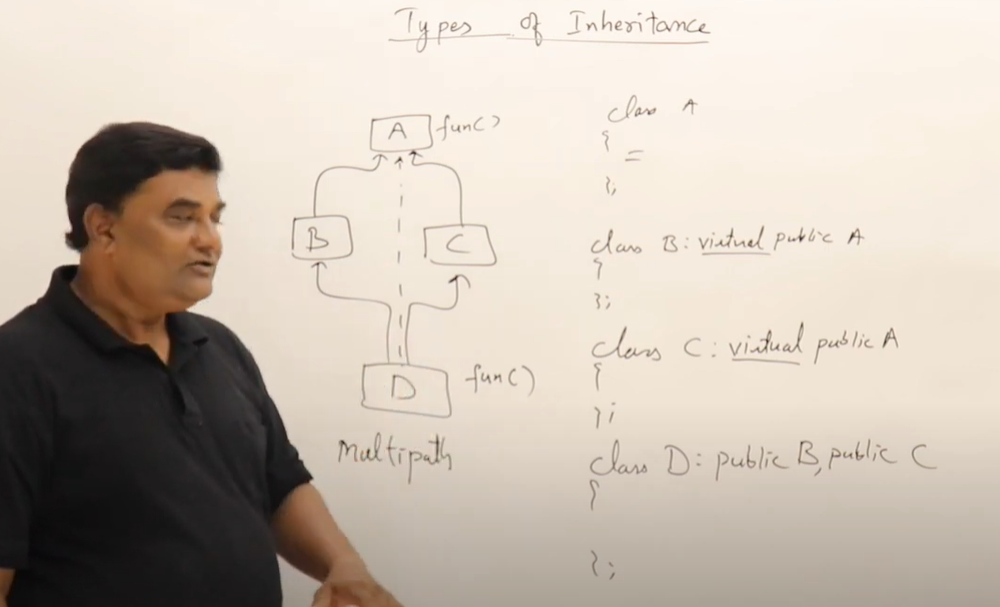 Types of Inheritance
A fun()
B
C
D fun()
Multipath
class A
{
=
};
class B: virtual public A
{
};
class C: virtual public A
{
};
class D: public B, public C
{
};